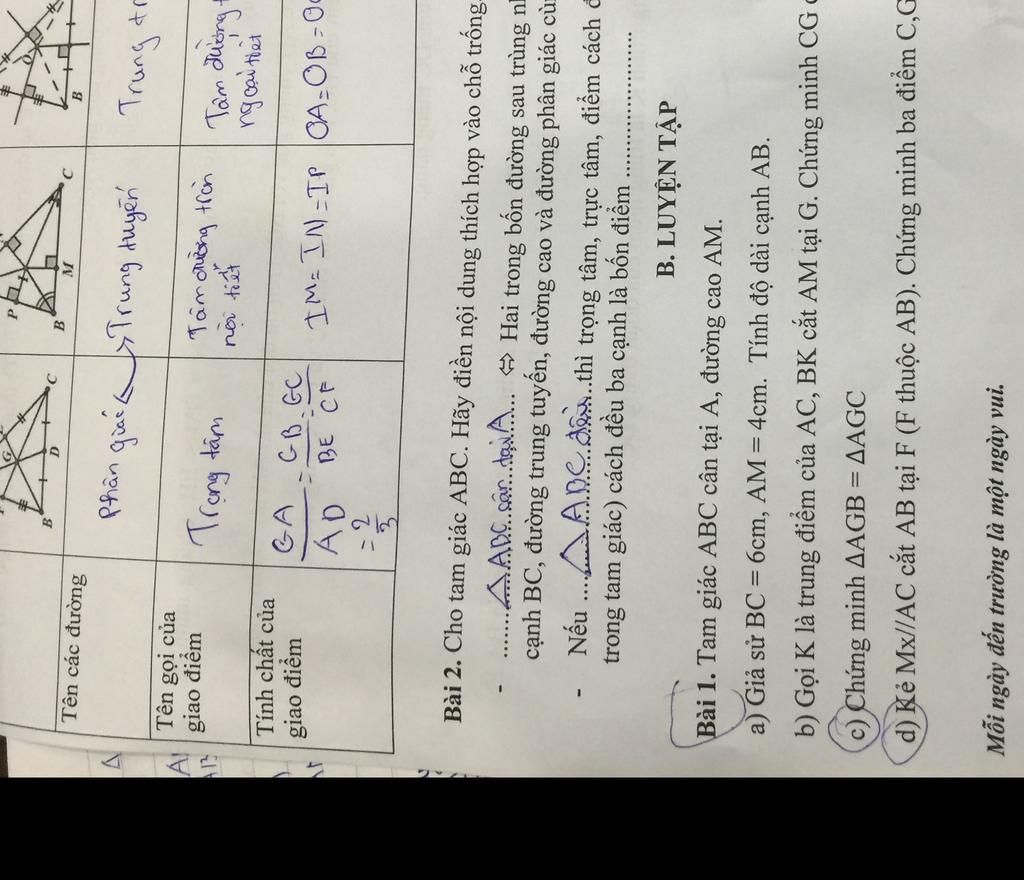 B D C G
B M C P
B
Tên các đường
Phân giác
Trung tuyến
Trung tr
Tên gọi của
giao điểm
Trọng tâm
Tâm đường tròn
nội tiết
Tâm đường t
ngoại tiết
Tính chất của
giao điểm
GA/AD = GB/BE = GC/CF
= 2/3
IM = IN = IP
OA = OB = OC
Bài 2. Cho tam giác ABC. Hãy điền nội dung thích hợp vào chỗ trống.
- ......ΔABC cân tại A...... ⇔ Hai trong bốn đường sau trùng nh
cạnh BC, đường trung tuyến, đường cao và đường phân giác cùn
- Nếu ......ΔABC đều......thì trọng tâm, trực tâm, điểm cách đ
trong tam giác) cách đều ba cạnh là bốn điểm ......................
B. LUYỆN TẬP
Bài 1. Tam giác ABC cân tại A, đường cao AM.
a) Giả sử BC = 6cm, AM = 4cm. Tính độ dài cạnh AB.
b) Gọi K là trung điểm của AC, BK cắt AM tại G. Chứng minh CG
c) Chứng minh ΔAGB = ΔAGC
d) Kẻ Mx//AC cắt AB tại F (F thuộc AB). Chứng minh ba điểm C,G
Mỗi ngày đến trường là một ngày vui.